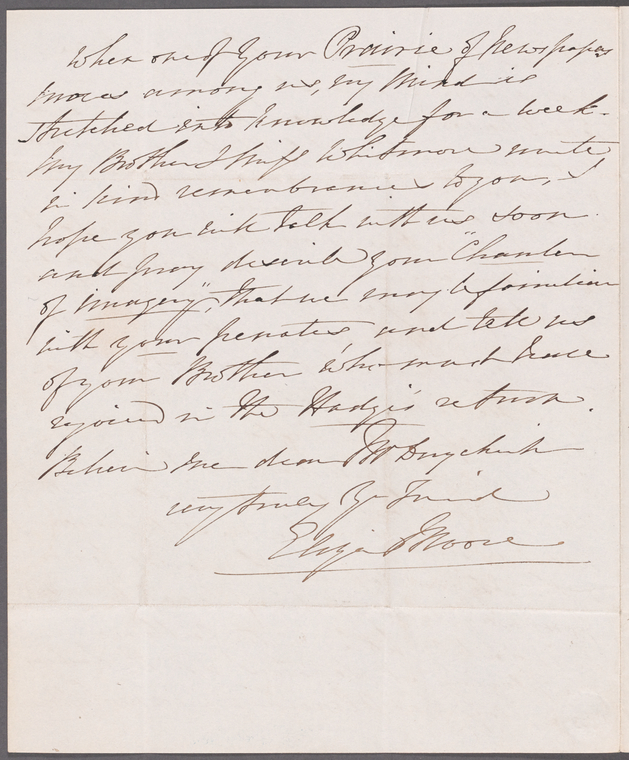 When one of your Prairie of Newspapers
moves among us, my Mind is
stretched into knowledge for a week.
My Brother & Whitmore unite
in kind remembrances to you, I
hope you will talk with us soon
and pray describe your "Chamber
of imagery", that we may be familiar
with your penates, and tell us
of your Brother who must have
rejoiced in the Hadgi's return.
Believe me dear Mr Duyckink
very truly Yr Friend
Eliza Moore